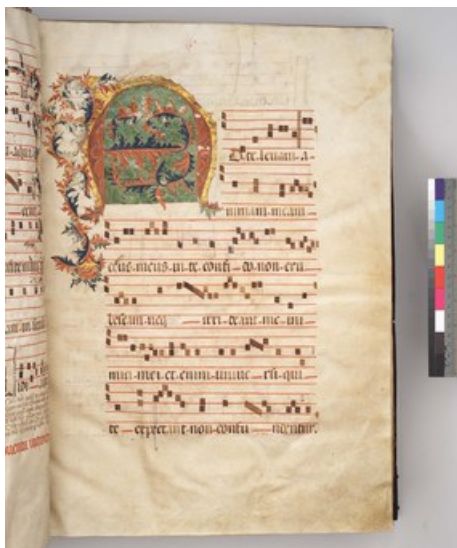 AD te levavi a-
nimam meam
deus meus in te confi—do non eru
bescam neq irri—deant me ini
mici mei et enim unive—rsi qui
te expectant non confu—ndentur.